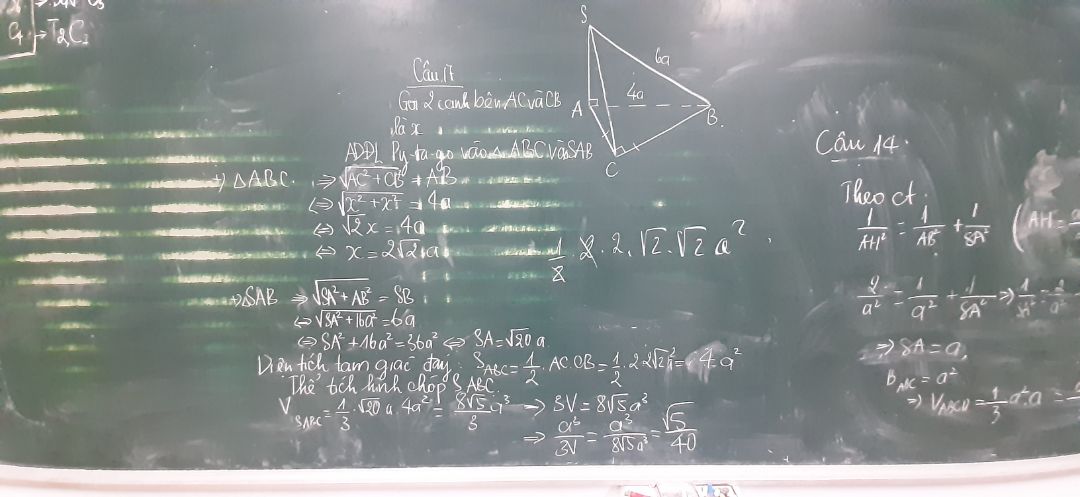 C₄ → T₂C₂
S
6a
4a
A
B
C
Câu 17
Gọi 2 cạnh bên AC và CB
là x
ADĐL Py-ta-go vào △ABC và SAB
+) △ABC. ⇒ √(AC² + CB²) = AB
⇔ √(x² + x²) = 4a
⇔ √2 x = 4a
⇔ x = 2√2 a
+) △SAB ⇒ √(SA² + AB²) = SB
⇔ √(SA² + 16a²) = 6a
⇔ SA² + 16a² = 36a² ⇔ SA = √20 a
Diện tích tam giác đáy: S_ABC = 1/2 . AC.CB =
Thể tích hình chóp S.ABC.
V_SABC = 1/3 . √20 a . 4a² = 8√5/3 a³ → 3V = 8√5 a³
⇒ a³/3V = a³/8√5a³ = √5/40
1/2 . 2 . 2 . √2 . √2 a²
Câu 14.
Theo ct:
1/AH² = 1/AB² + 1/SA² (AH =
2/a² = 1/a² + 1/SA² ⇒
⇒ SA = a,
B_ABC = a²
⇒ V_ABCD = 1/3 a².a =